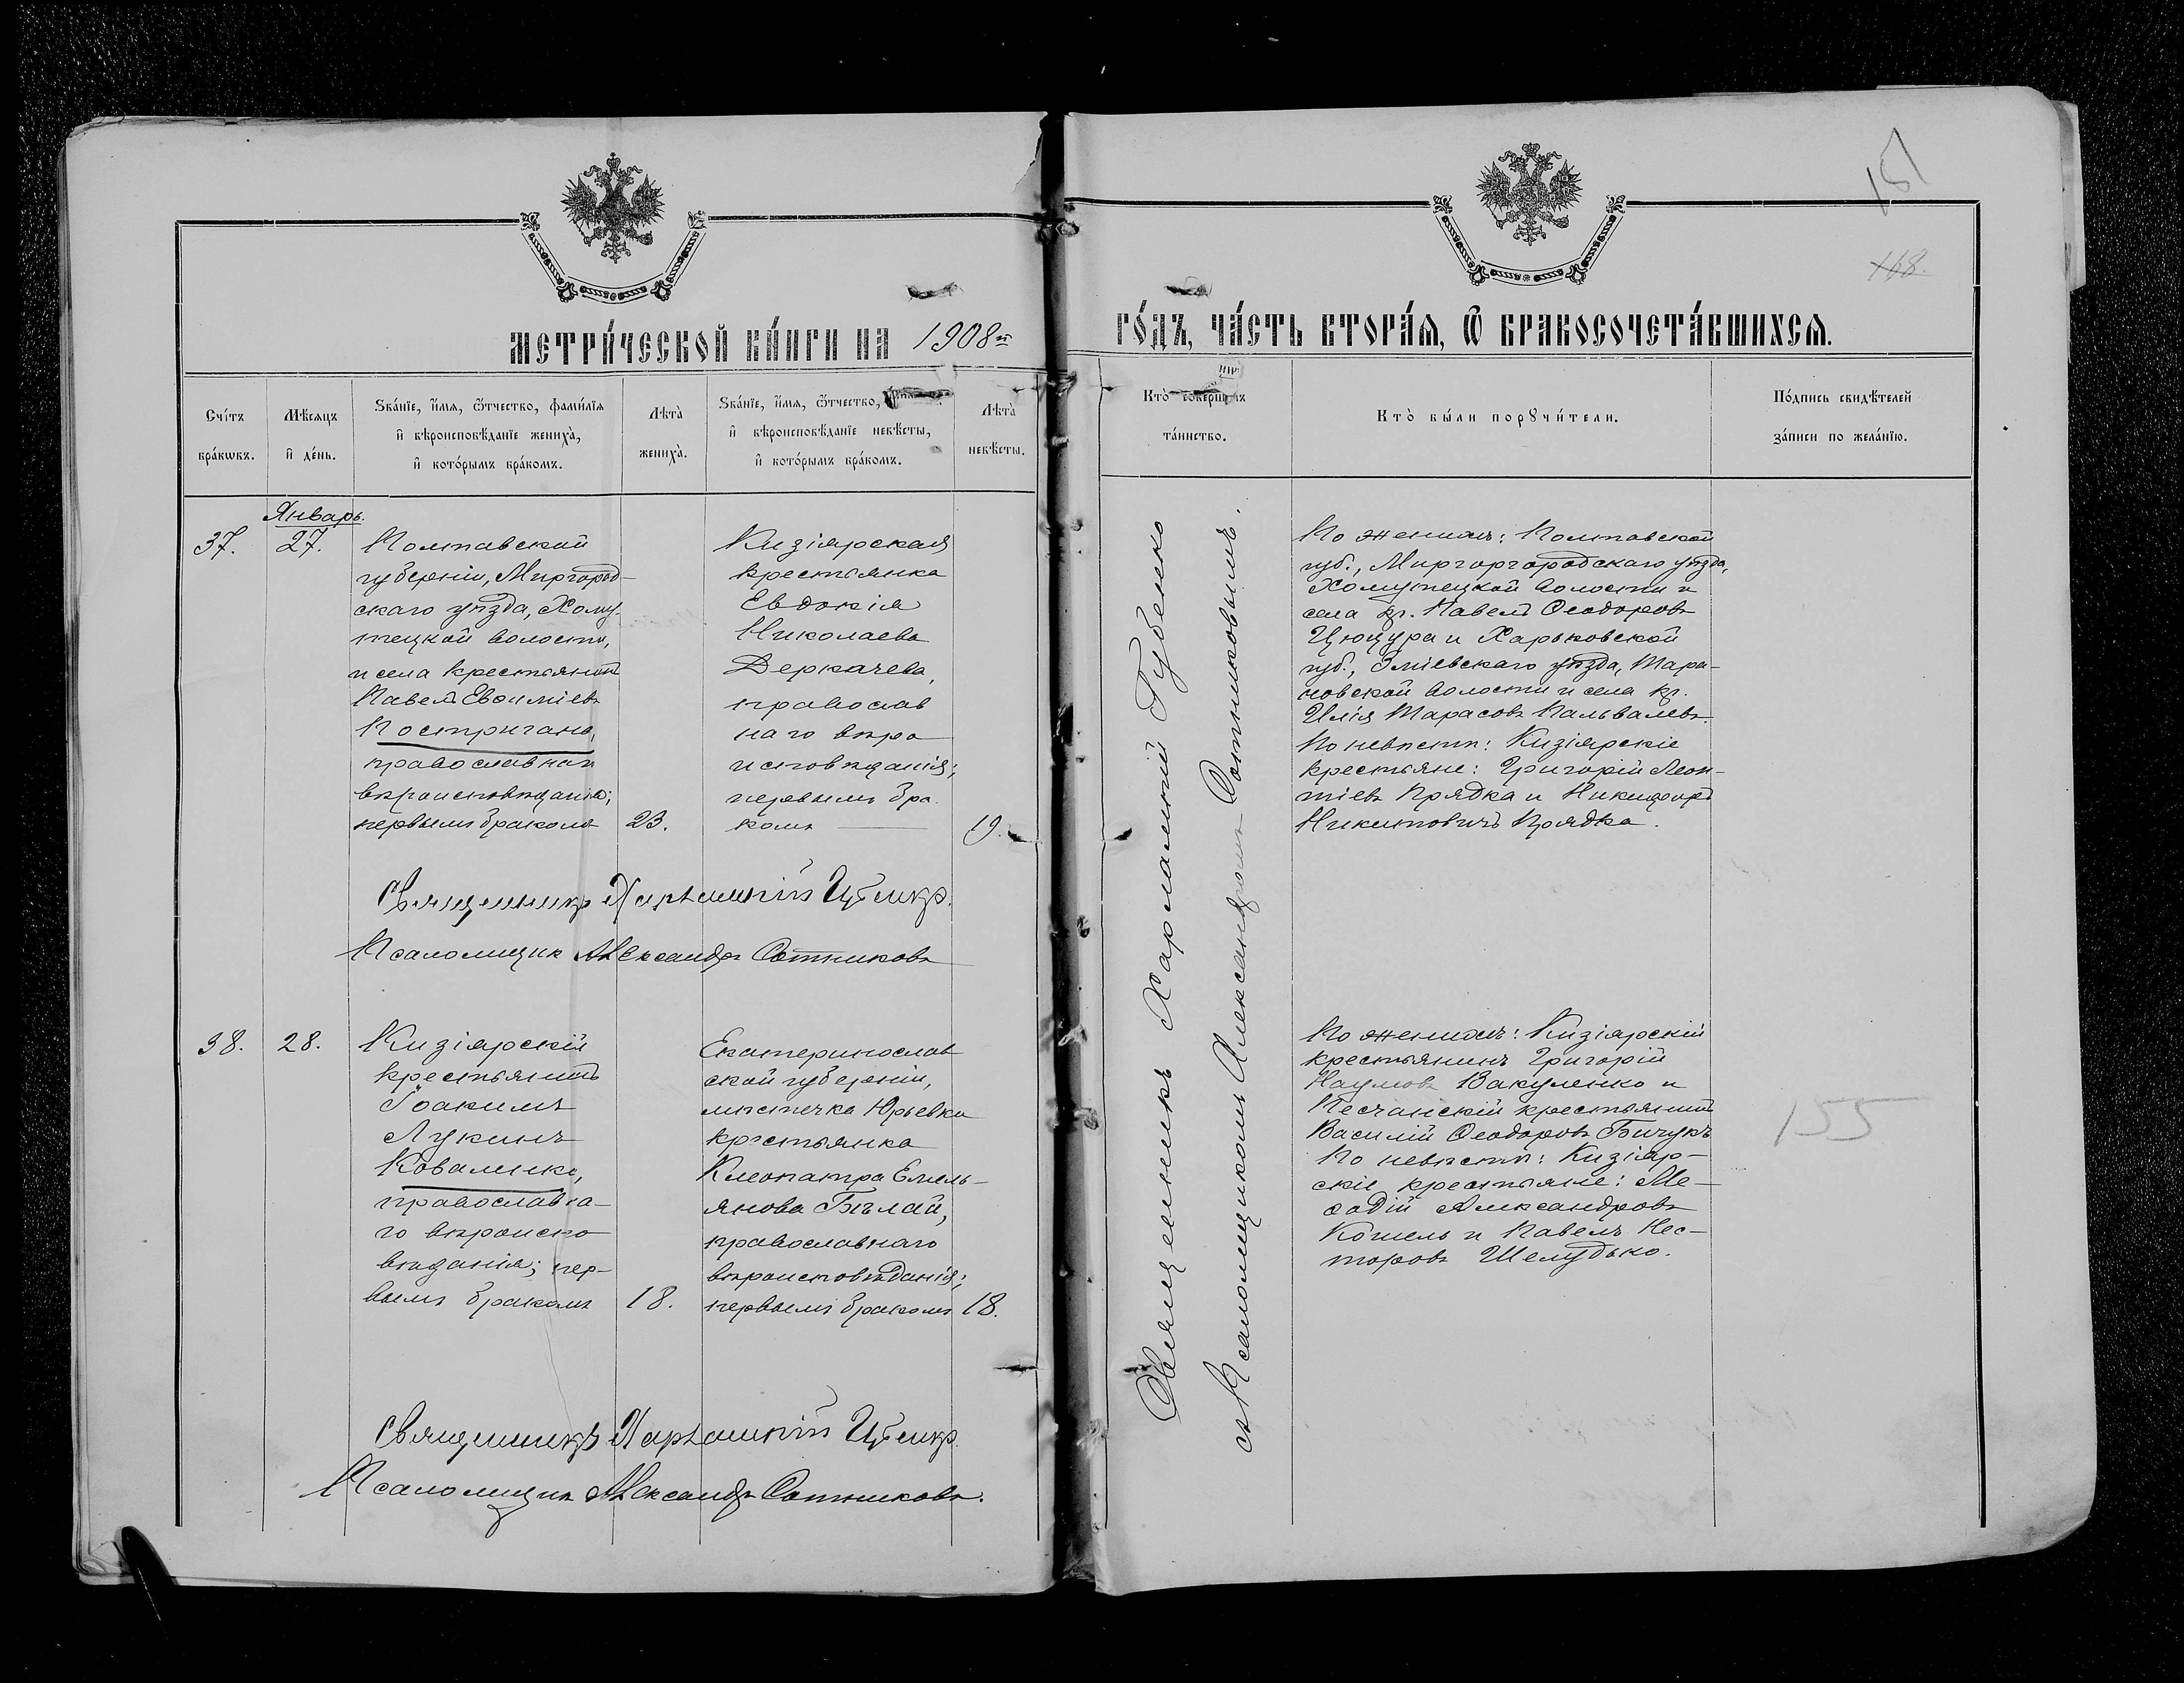 151
168.
МЕТРИ́ЧЕСКОЙ КНИ́ГИ НА 1908й ГО́ДЪ, ЧА́СТЬ ВТОРА́Я, Ѡ БРАКОСОЧЕТА́ВШИХСЯ.
Сче́тъ бра́кѡвъ.
Мѣ́сяцъ и де́нь.
Зва́нїе, и́мя, ѻ́тчество, фами́лїя и вѣроисповѣ́данїе жениха̀, и кото́рымъ бра́комъ.
Лѣта̀ жениха̀.
Зва́нїе, и́мя, ѻ́тчество,
и вѣроисповѣ́данїе невѣ́сты, и кото́рымъ бра́комъ.
Лѣта̀ невѣ́сты.
Кто̀ соверша́лъ та́инство.
Кто̀ бы́ли порꙋчи́тели.
По́дпись свидѣ́телей за́писи по жела́нїю.
Январь.
37.
27.
Полтавской
губерніи, Миргород-
скаго уѣзда, Хому-
тецкой волости,
и села крестьянинъ
Павелъ Евѳиміевъ
Постригань,
православнаго
вѣроисповѣданія;
первымъ бракомъ
23.
Кизіярская
крестьянка
Евдокія
Николаева
Деркачева,
православ
наго вѣро
исповѣданія;
первымъ бра
комъ
19.
Священникъ Харлампій Губенко
съ Псаломщикомъ Александромъ Сотниковымъ.
По женихѣ: Полтавской
губ., Миргоргородскаго уѣзда,
Хомутецкой волости и
села кр. Павелъ Ѳеодоровъ
Цюцюра и Харьковской
губ., Зміевскаго уѣзда, Тара-
новской волости и села кр.
Илія Тарасовъ
По невѣстѣ: Кизіярскіе
крестьяне: Григорій Леон-
тіевъ Прядка и Никифоръ
Никитовичъ Прядка.
Священникъ Харлампій Губенко
Псаломщикъ Александръ Сотниковъ
38.
28.
Кизіярскій
крестьянинъ
Іоакимъ
Лукинъ
Коваленко,
православна-
го вѣроиспо
вѣданія; пер-
вымъ бракомъ
18.
Екатеринослав
ской губерніи,
мѣстечка Юрьевки
крестьянка
Клеопатра Емель-
янова Бѣлай,
православнаго
вѣроисповѣданія;
первымъ бракомъ
18.
По женихѣ: Кизіярскій
крестьянинъ Григорій
Наумовъ Вакуленко и
Песчанскій крестьянинъ
Василій Ѳеодоровъ Бичукъ
По невѣстѣ: Кизіяр-
скіе крестьяне: Ме-
ѳодій Александровъ
Кошель и Павелъ Нес-
торовъ Шелудько.
155
Священникъ Харлампій Губенко
Псаломщикъ Александръ Сотниковъ.